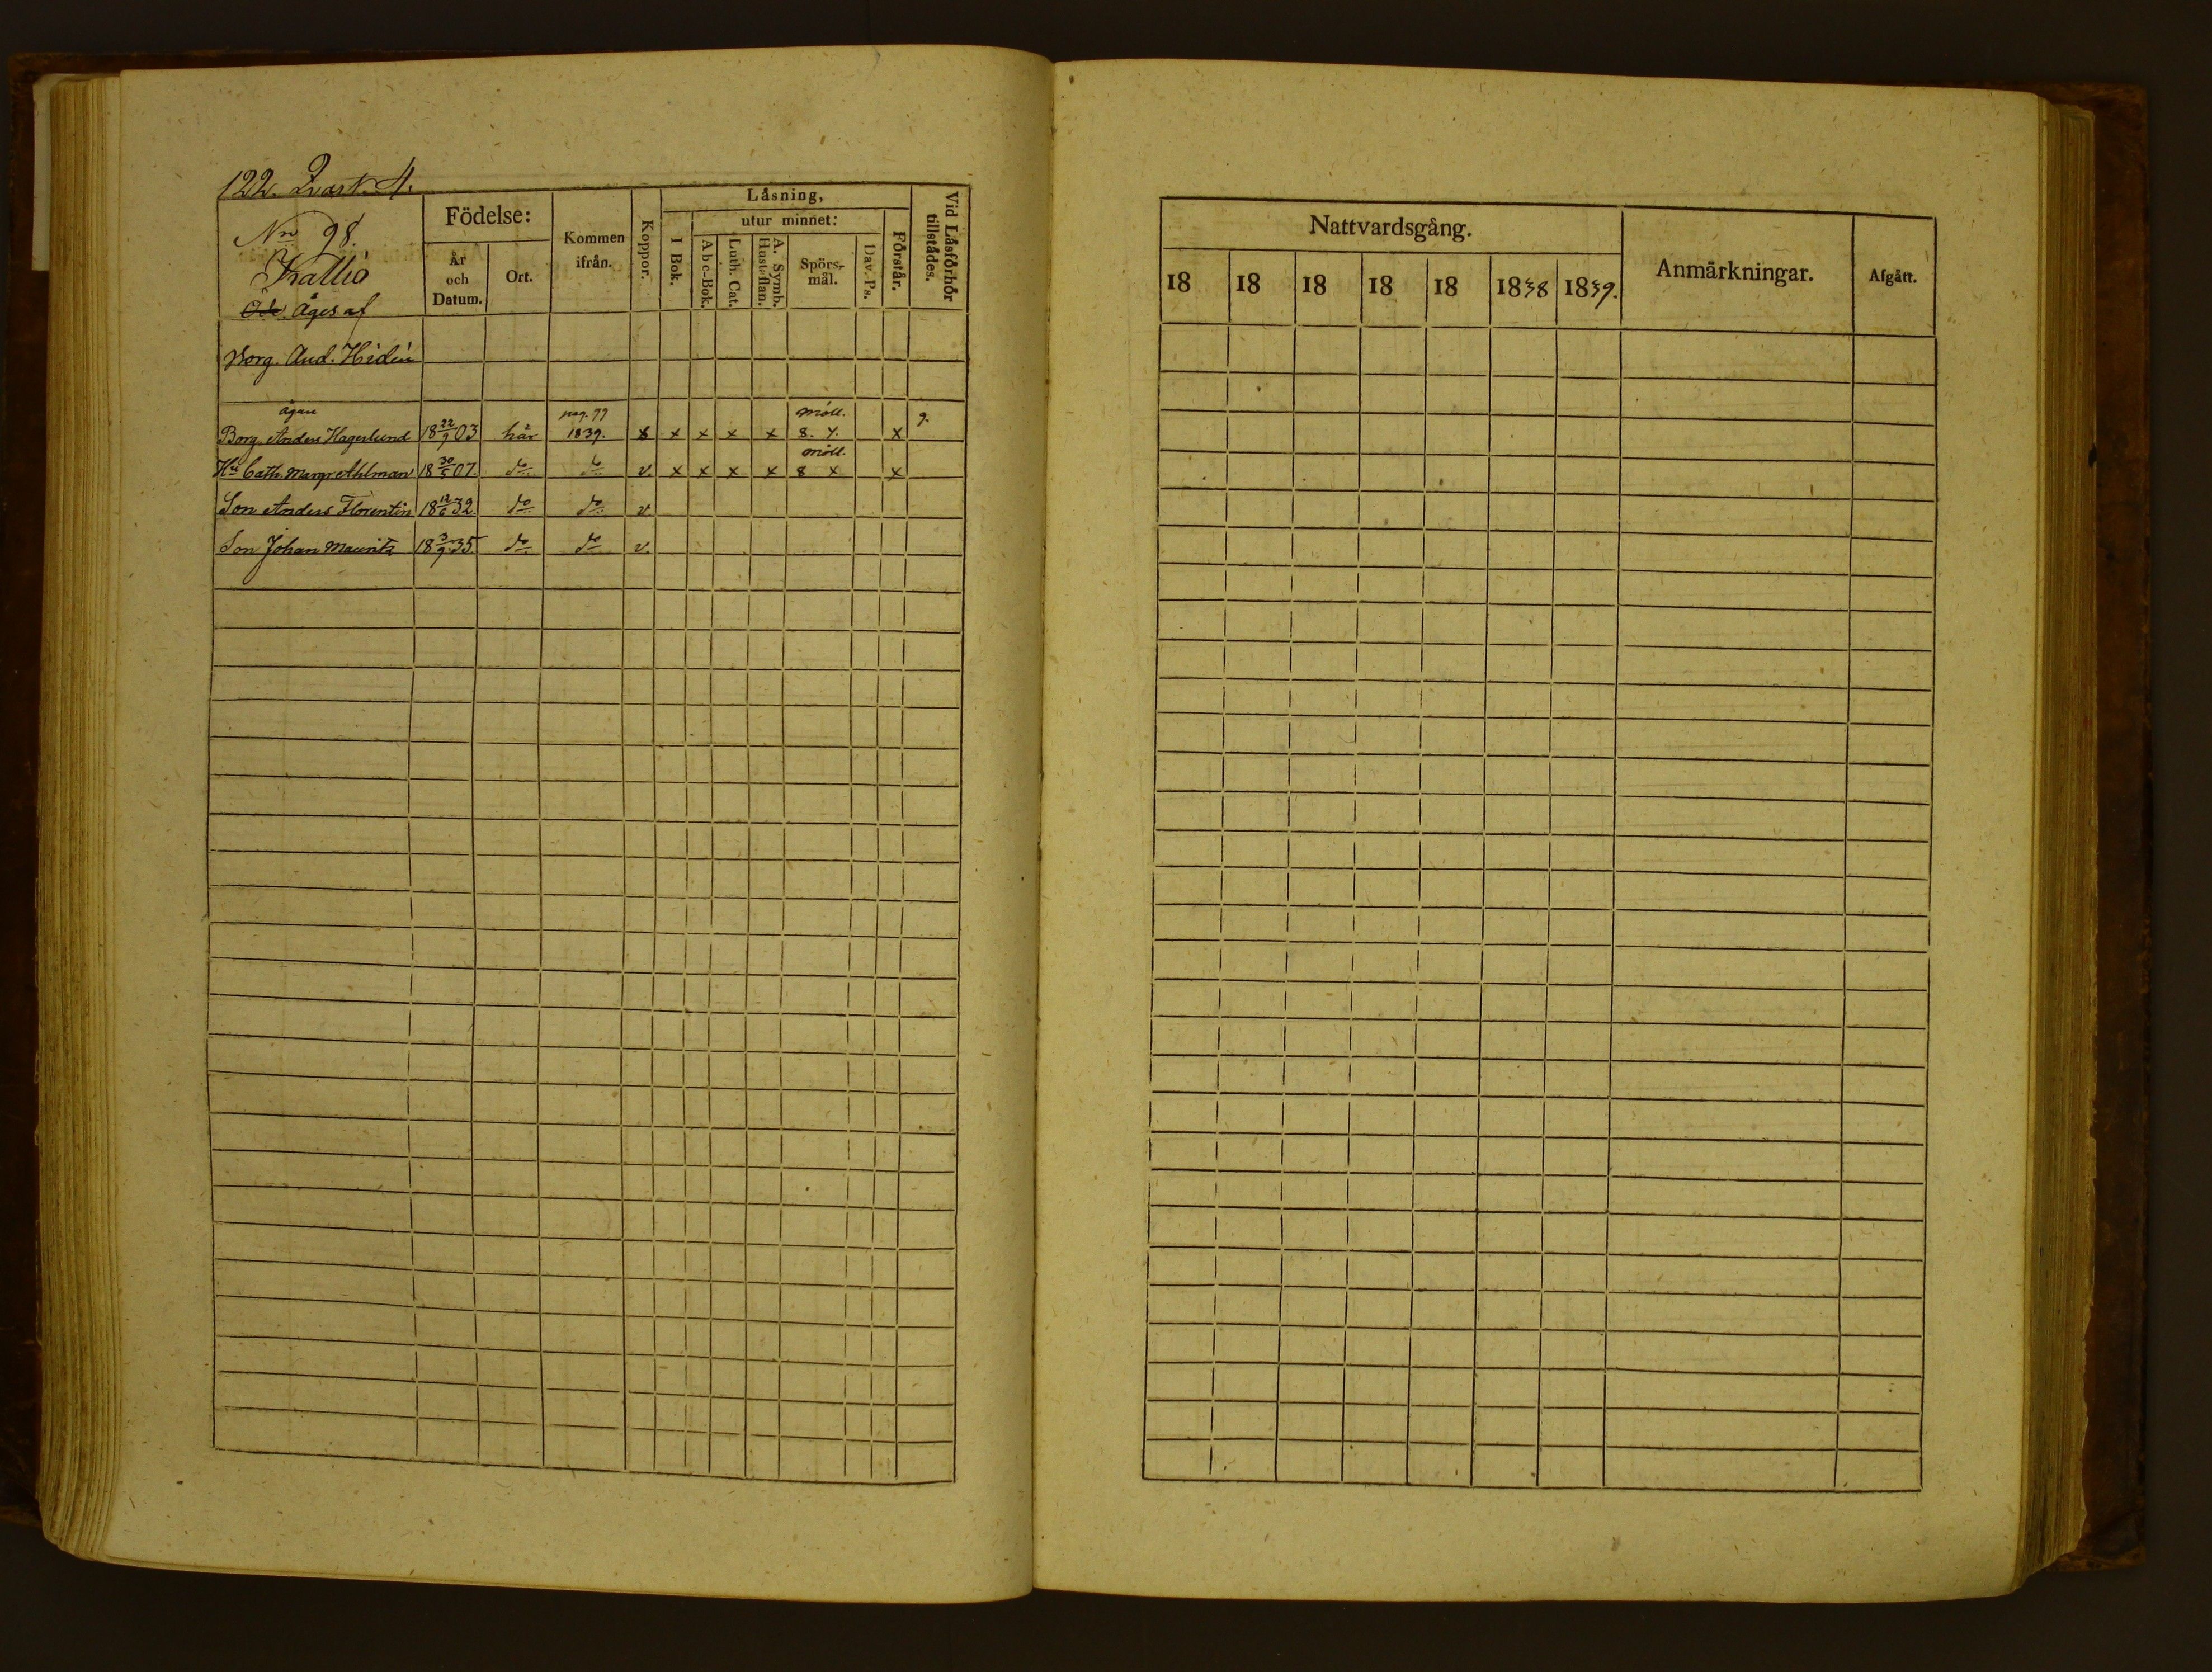 122. Qvart. 4.
No 98.
Kallio
Ode. Äges af
Borg. And. Hedén
Födelse:
År och Datum.
Ort.
Kommen ifrån.
Koppor.
Låsning,
I Bok.
utur minnet:
A b c-Bok.
Luth. Cat.
A. Symb. Hust-flan.
Spörs-mål.
Dav. Ps.
Förstår.
Vid Låsförhör tillstådes.
ägare pag. 99 möll. 9.
Borg. Anders Hagerlund 18 22/9 03 här 1839. x x x x x 8. 4. x
möll.
Hu Cath. Margr. Ahlman 18 30/5 07. do do v. x x x x 8 x x
Son Anders Florentin 18 12/6 32. do do v
Son Johan Mauritz 18 3/9 35 do do v.
Nattvardsgång.
18 18 18 18 18 1838 1839.
Anmärkningar.
Afgått.